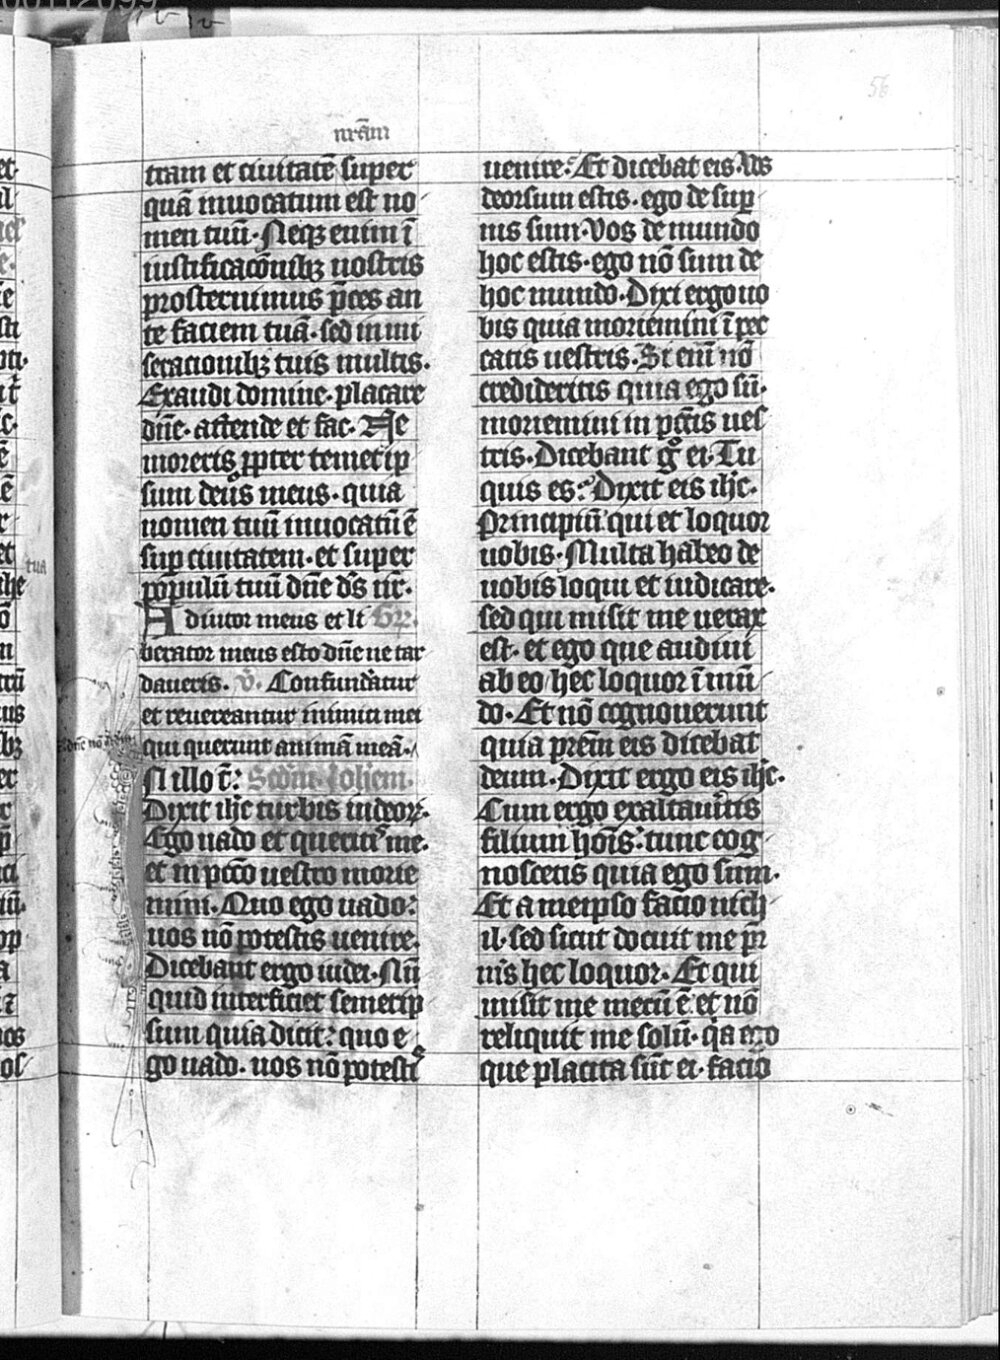 56
nr̄am
tram et ciuitatē super
quā inuocatum est no
men tuū. Neqꝫ enim ī
iustificac̄oībꝫ nostris
prosternimus p̄ces an
te faciem tuā. sed in mi
seracionibꝫ tuis multis.
Exaudi domine. placare
dn̄e. attende et fac. Ne
moreris ꝓpter temetip
sum deus meus. quia
nomen tuū inuocatū ē
suꝑ ciuitatem. et super
populū tuū dn̄e ds̄ nr̄.
Adiutor meus et li Gꝝ.
berator meus esto dn̄e ne tar
daueris. v̄. Confundātur
et reuereantur inimici mei
qui querunt animā meā.
N illo t̄: Scd̄m Joh̄em.
Dixit ih̄c turbis iudeoꝝ.
Ego uado et queritis me.
et in pc̄cō uestro morie
mini. Quo ego uado:
uos nō potestis uenire.
Dicebant ergo iudei. Nū
quid interficiet semetip
sum quia dicit: quo e
go uado. uos nō potestis
uenire: Et dicebat eis. Vos
deorsum estis. ego de suꝑ
nis sum. Vos de mundo
hoc estis. ego nō sum de
hoc mundo. Dixi ergo uo
bis quia moriemini ī pec
catis uestris. Si enī nō
credideritis quia ego sū.
moriemini in pc̄cis ues
tris. Dicebant gͦ ei. Tu
quis es: Dixit eis ih̄c.
Principiū qui et loquor
uobis. Multa habeo de
uobis loqui et iudicare.
sed qui misit me uerax
est. et ego que audiui
ab eo hec loquor ī mū
do. Et nō cognouerunt
quia prēm eis dicebat
deum. Dixit ergo eis ih̄c.
Cum ergo exaltau̾itis
filium hoīs: tunc cog
noscetis quia ego sum.
Et a meipso facio nich
il. sed sicut docuit me pr̄
mīs hec loquor. Et qui
misit me mecū ē. et nō
reliquit me solū. qͣa ego
que placita sūt ei. facio